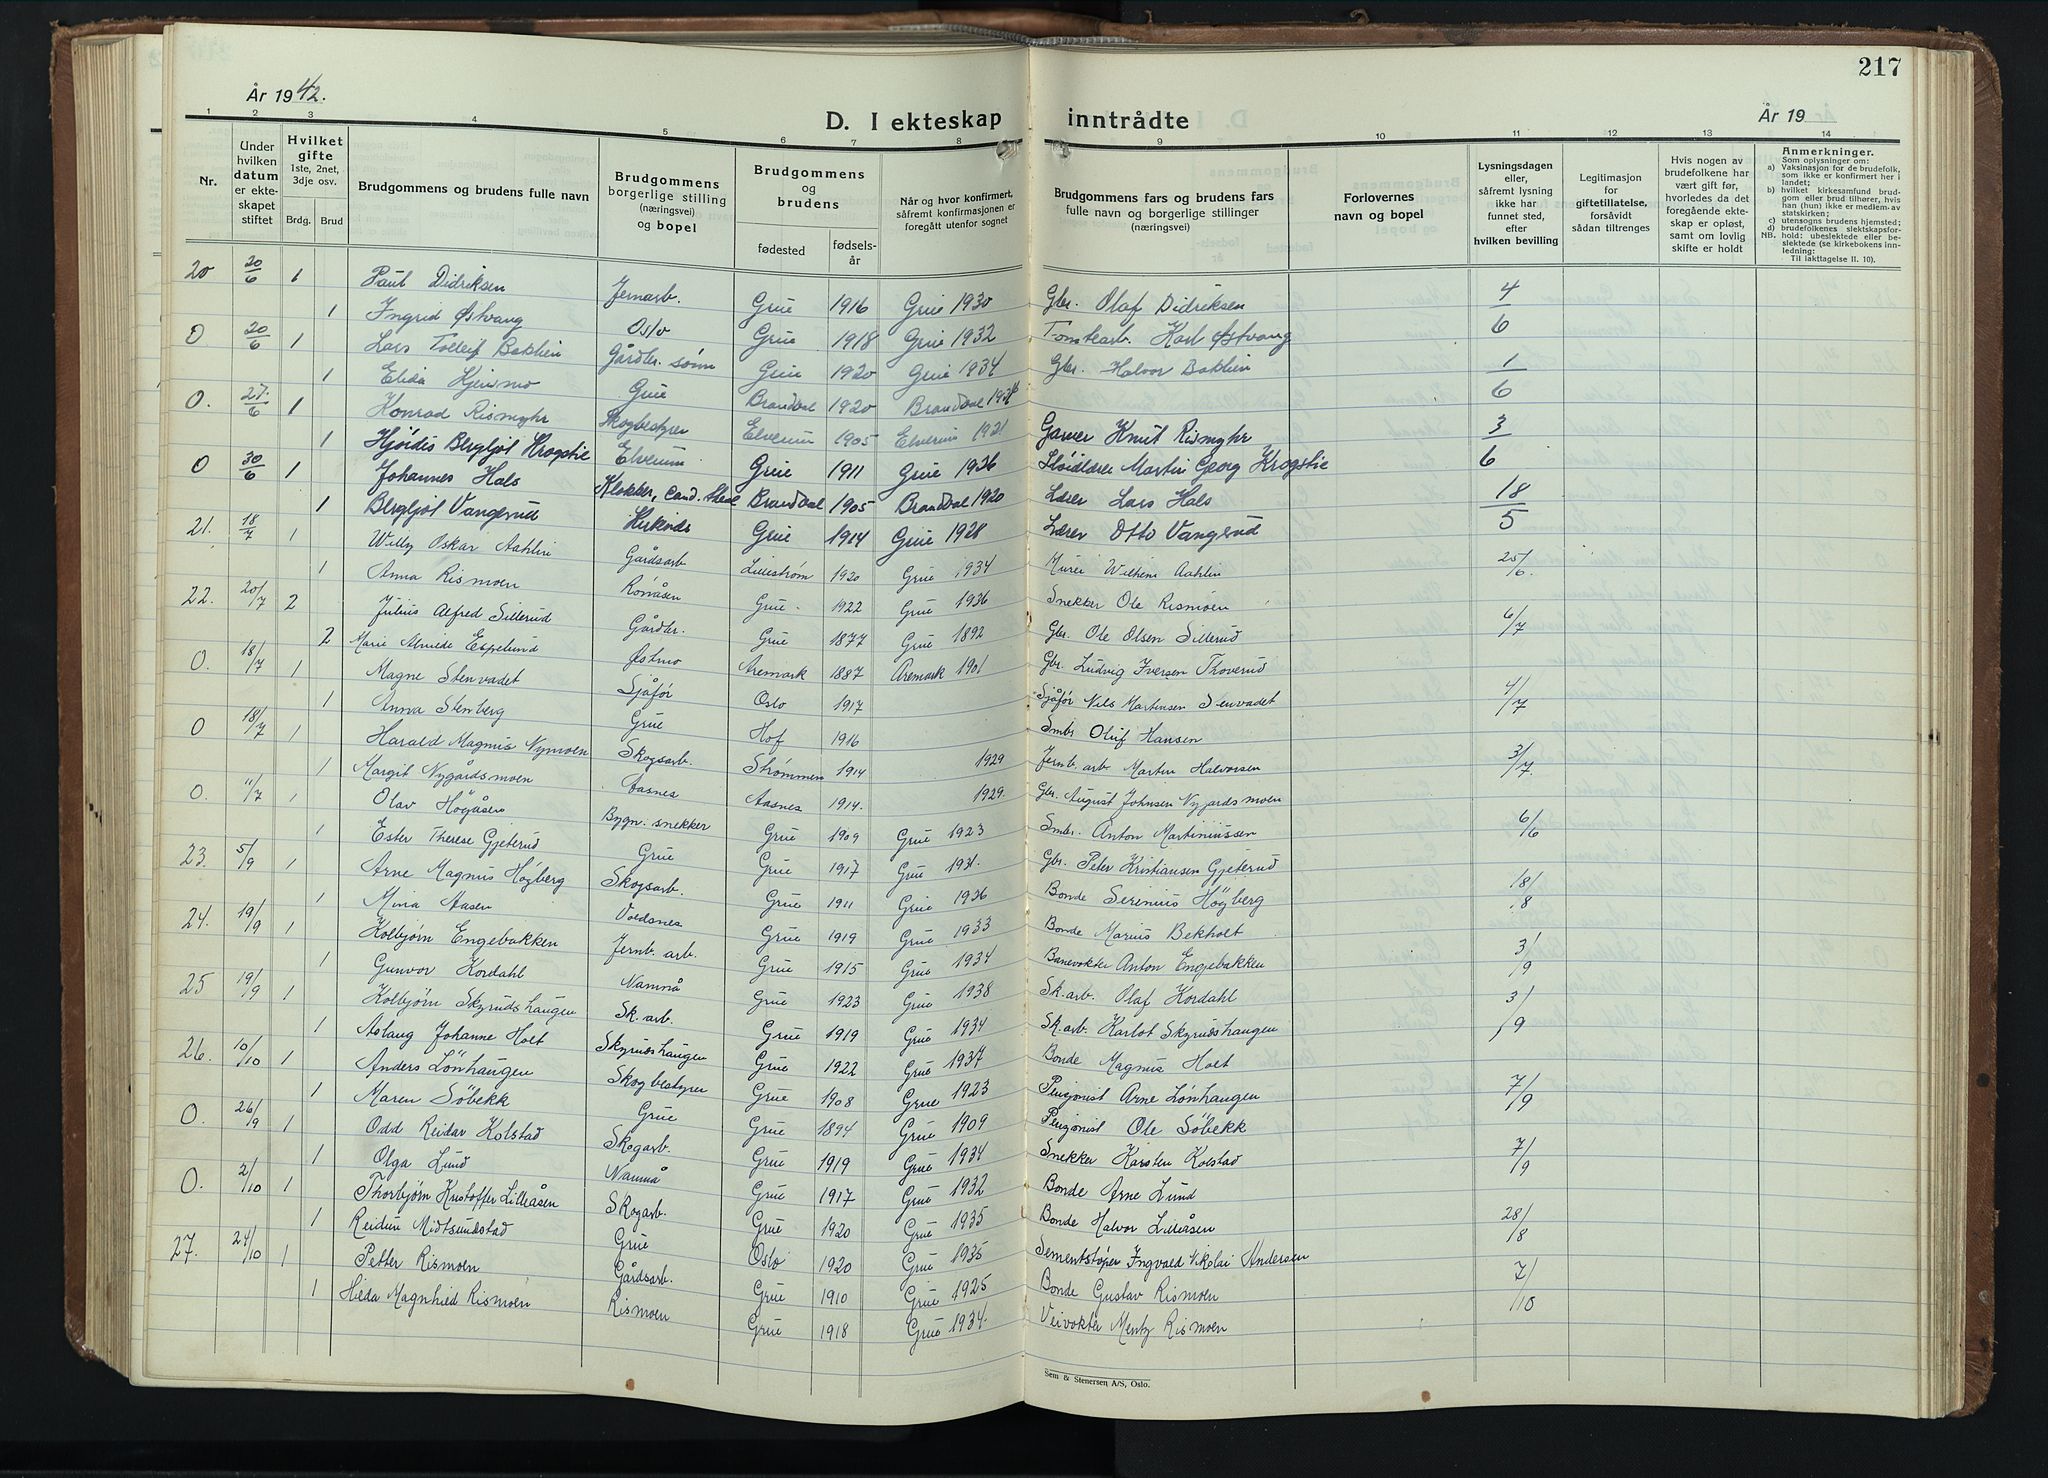 217
År 1942.
År 19
D. I ekteskap inntrådte
1 2 3 4 5 6 7 8 9 10 11 12 13 14
Nr.
Under hvilken datum er ekteskapet stiftet
Hvilket gifte 1ste, 2net, 3dje osv.
Brdg. Brud
Brudgommens og brudens fulle navn
Brudgommens borgerlige stilling (næringsvei) og bopel
Brudgommens og brudens
fødested fødselsår
Når og hvor konfirmert, såfremt konfirmasjonen er foregått utenfor sognet
Brudgommens fars og brudens fars fulle navn og borgerlige stillinger (næringsvei)
Forlovernes navn og bopel
Lysningsdagen eller, såfremt lysning ikke har funnet sted, efter hvilken bevilling
Legitimasjon for giftetillatelse, forsåvidt sådan tiltrenges
Hvis nogen av brudefolkene har vært gift før, hvorledes da det foregående ekteskap er opløst, samt om lovlig skifte er holdt
Anmerkninger.
Som oplysninger om:
a) Vaksinasjon for de brudefolk, som ikke er konfirmert her i landet;
b) hvilket kirkesamfund brudgom eller brud tilhører, hvis han (hun) ikke er medlem av statskirken;
c) utensogns brudens hjemsted;
d) brudefolkenes slektskapsforhold: ubeslektede eller beslektede (se kirkebokens innledning:
NB. Til iakttagelse II. 10).
20 20/6 1 Paul Didriksen Jernarb. Grue 1916 Grue 1930 Gbr. Olaf Didriksen 4/6
1 Ingrid Østvang Oslo Grue 1918 Grue 1932 Tomtearb. Karl Østvang
0 20/6 1 Lars Tollef Baklien Gårdbr. sønn Grue 1920 Grue 1934 Gbr. Halvor Baklien 1/6
1 Elida Kjensmo Grue Brandval 1920 Brandval
0. 27./6 1 Konrad Rismyhr Skogbestyrer Elverum 1905 Elverum 1921 Garver Knut Rismyhr 3/6
1 Hjördis Bergljot Krogstie Elverum Grue 1911 Grue 1926 Sløidlærer Martin Georg Krogstie
0 30/6 1 Johannes Hals Klokker, cand. theol Brandval 1905 Brandval 1920 Lærer Lars Hals 18/5
1 Bergljot Vangerud Kirkenes Grue 1914 Grue 1928 Lærer Otto Vangerud
21. 18/7 1 Willy Oskar Aahlin Gårdsarb Lillestrøm 1920 Grue 1934 Murer Wilhelm Aahlin 25/6.
1 Anna Rismoen Rönåsen Grue 1922 Grue 1936 Snekker Ole Rismoen
22. 20/7 2 Julius Alfred Sillerud Gårdbr. Grue 1877 Grue 1892 Gbr. Ole Olsen Sillerud 6/7
2 Marie Almide Espelund Östmo Aremark 1887 Aremark 1901 Gbr. Ludvig Iversen Thoverud
0. 18/7 1 Magne Stenvadet Sjåför Oslo 1917 Sjåför Nils Martinsen Stenvadet 4/7
1 Anna Stenberg Grue Hof 1916 Smbr Oluf Hansen
0 18/7 1 Harald Magnus Nymoen Skogsarb. Strømmen 1914 1929 Jernb. arb. Martin Halvorsen 3/7.
1 Margit Nygårdsmoen Aasnes Aasnes 1914. 1929. Gbr. August Johnsen Nygårdsmoen
0. 11/7 1 Olav Högåsen Bygn. snekker Grue 1909 Grue 1923 Smbr. Anton Martiniussen 6/6
1 Ester Therese Gjeterud Grue Grue 1917 Grue 1931. Gbr. Peter Kristiansen Gjeterud
23. 5/9 1 Arne Magnus Högberg Skogsarb. Grue 1911 Grue 1936 Bonde Serinius Högberg 18/8
1 Mina Aasen Voldsnes Grue 1919 Grue 1933 Bonde Marius Bekholt
24. 19/9 1 Kolbjørn Engebakken Jernb. arb. Grue 1915 Grue 1934 Banevokter Anton Engebakken 3/9
1 Gunvor Kordahl Namnå Grue 1923 Grue 1938 Sk.arb. Olaf Kordahl
25 19/9 1 Kolbjørn Skyrudshaugen Sk. arb. Grue 1919 Grue 1934 Sk.arb. Karlot Skyrudshaugen 3/9
1 Aslaug Johanne Holt Skyrudshaugen Grue 1922 Grue 1937 Bonde Magnus Holt
26. 10/10 1 Anders Lönhaugen Skogbestyrer Grue 1908 Grue 1923 Pensjonist Arne Lönhaugen 7/9
1 Maren Söbekk Grue Grue 1894 Grue 1909 Pensjonist Ole Söbekk
0. 26/9 1 Odd Reidar Kolstad Skogarb. Grue 1919 Grue 1934 Snekker Karsten Kolstad 7/9
1 Olga Lund Namnå Grue 1917 Grue 1932 Bonde Arne Lund
0. 2/10 1 Thorbjørn Kristoffer Lilleåsen Skogarb. Grue 1920 Grue 1935 Bonde Halvor Lilleåsen 28/8
1 Reidun Midtsundstad Grue Oslo 1920 Grue 1935 Sementstøper Ingvald Nikolai Andersen
27. 24/10 1 Petter Rismoen Gårdsarb. Grue 1910 Grue 1925 Bonde Gustav Rismoen 7/10
1 Hilda Magnhild Rismoen Rismoen Grue 1918 Grue 1934. Veivokter Mentz Rismoen
Sem & Stenersen A/S, Oslo.